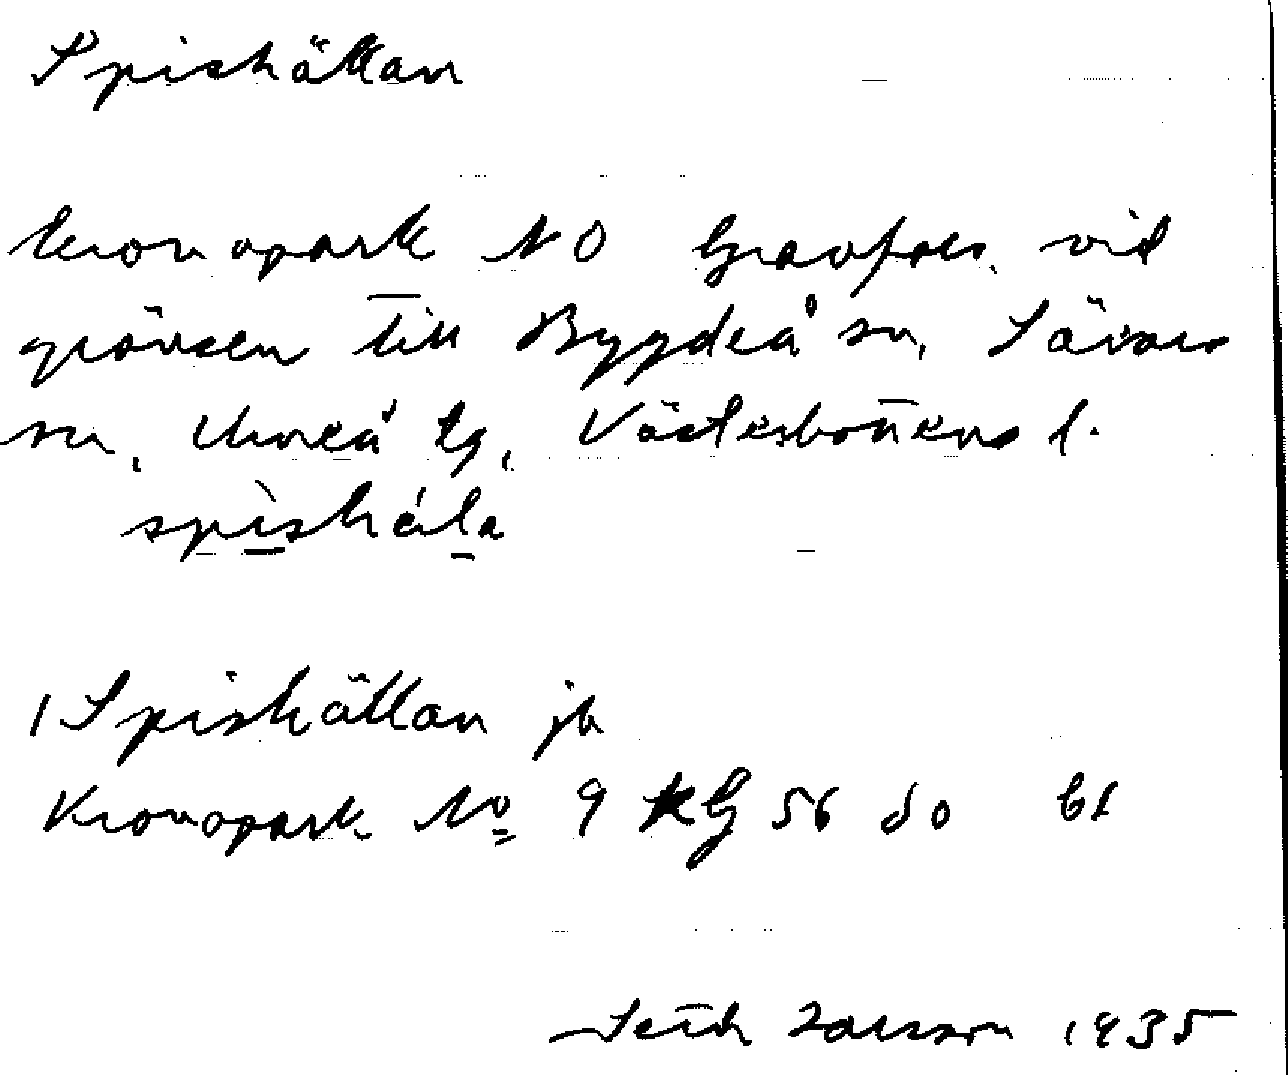 Spishällan
kronopark NO Gravfors vid
gränsen till Bygdeå sn, Sävars
sn, Umeå tg, Västerbottens l.
spishäla
1 Spishällan jb
Kronopark No 9 kG 56 do bl
Larsson 1935